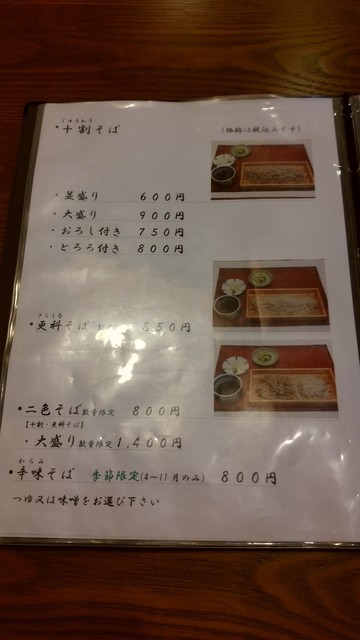 じゅうわり
・十割そば
(価格は税込みです)
・並盛り 600円
・大盛り 900円
・おろし付き 750円
・とろろ付き 800円
さらしな
・更科そば 850円
・二色そば 数量限定 800円
【十割・更科そば】
・大盛り 数量限定 1,400円
からみ
・辛味そば 季節限定(4～11月のみ) 800円
つゆ又は味噌をお選び下さい